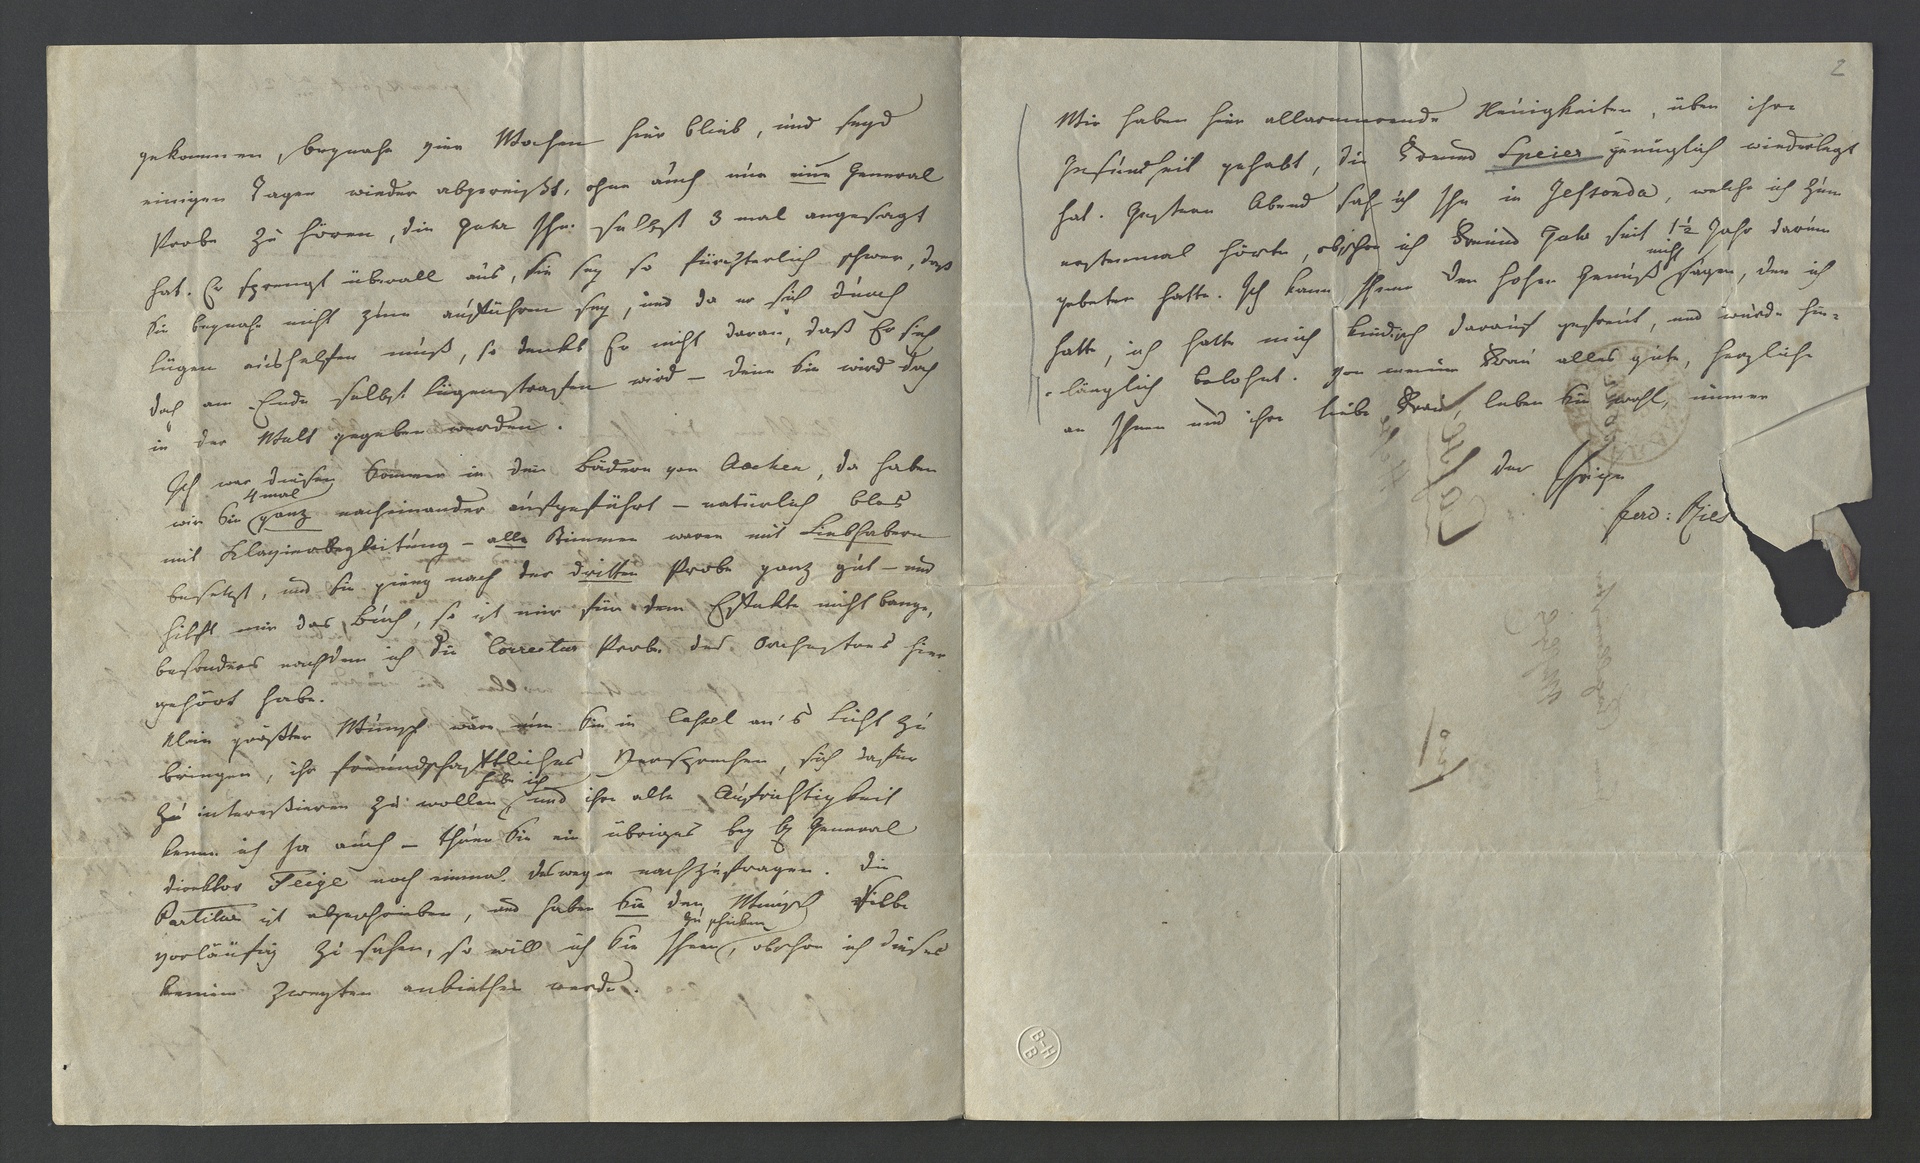 gekommen, beynahe vier Wochen hier blieb, und seyd
einigen Tagen wieder abgereißt, ohne auch nur eine General
Probe zu hören, die Guhr Ihm selbst 3 mal angesagt
hat. Er sprengt überall aus, sie sey so fürchterlich schwer, daß
Sie beynahe nicht zum aufführen sey, und da er sich durch
lügen aushelfen muß, so denkt Er nicht daran, daß Er sich
doch am Ende selbst lügenstrafen wird – denn Sie wird doch
in der Welt gegeben werden.
Ich war diesen Sommer in den Bädern von Aachen, da haben
4 mal
wir Sie ganz nacheinander aufgeführt – natürlich blos
mit Klavierbegleitung – alle Stimmen waren mit Liebhabern
besetzt, und sie gieng nach der dritten Probe ganz gut – und
hilft mir das Buch, so ist mir für dem Effekte nicht bange,
besonders nachdem ich die Correctur Probe des Orchesters hier
gehört habe.
Mein größter Wunsch wäre nun Sie in Cassel an's Licht zu
bringen, ihr freundschaftliches Versprechen, sich dafür
habe ich
zu interessieren zu wollen und ihre alte Aufrichtigkeit
kenne ich ja auch – thuen Sie ein übriges bey General
direktor Feige noch einmal deswegen nachzufragen. Die
Partitur ist abgeschrieben, und haben Sie den Wunsch selbe
zu schicken
vorläufig zu sehen, so will ich Sie Ihnen, obschon ich dieses
keinem Zweyten anbiethen werde.
2
Wir haben hier allarmirende Neuigkeiten, über ihre
Gesundheit gehabt, die Freund Speier genüglich wiederlegt
hat. Gestern Abend sah ich Ihre Jessonda, welche ich zum
erstenmal hörte, obschon ich Freund Guhr seit 1½ Jahr darum
nicht
gebeten hatte. Ich kann Ihnen den hohen Genuß sagen, den ich
hatte, ich hatte mich kindisch darauf gefreut, und wurde hin=
=länglich belohnt. Von meiner Frau alles gute, herzliche
an Ihnen und ihre liebe Frau, leben Sie wohl, immer
der Ihrige
Ferd: Ries
B-H
B